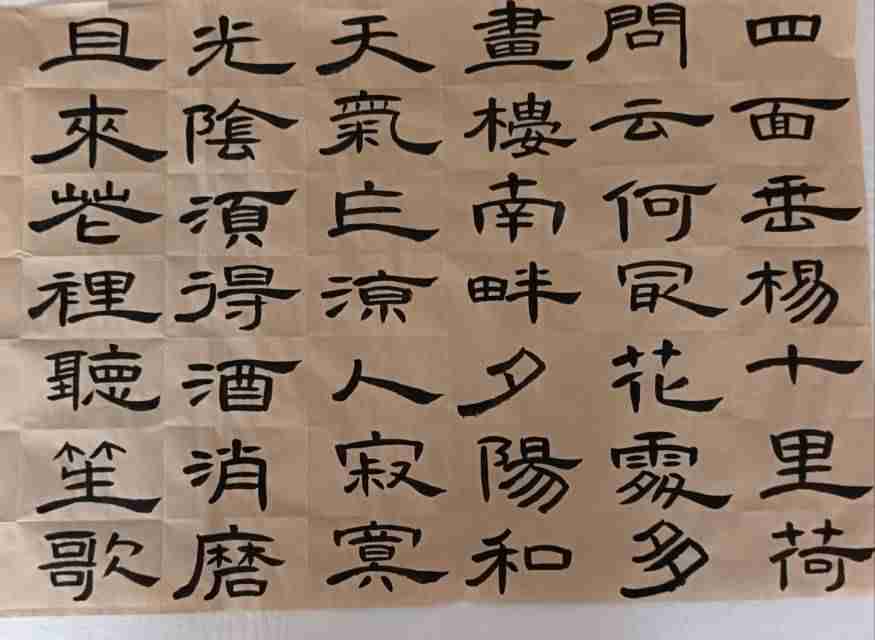 四面垂楊十里荷
問云何冣花處多
畫樓南畔夕陽和
天氣乍涼人寂寞
光陰須得酒消磨
且來花裡聽笙歌